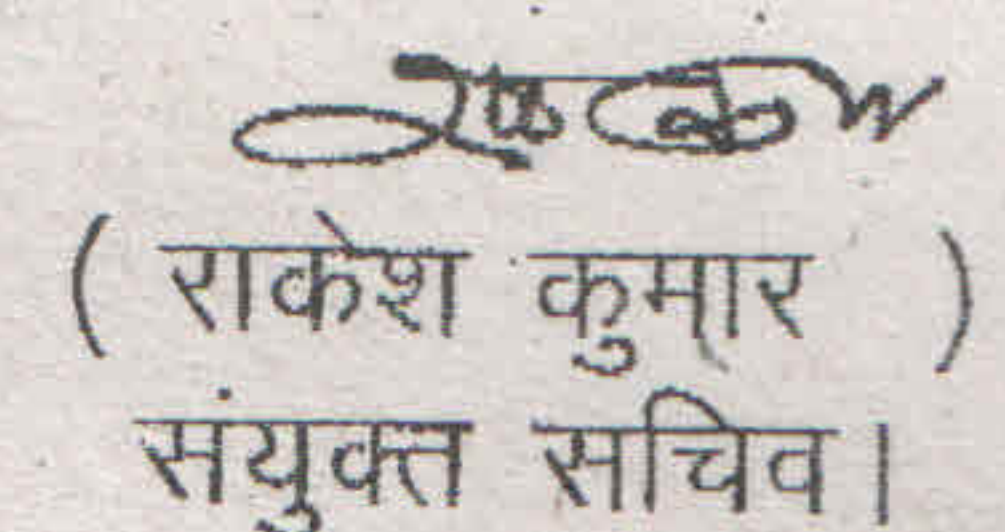 ( राकेश कुमार )
संयुक्त सचिव।